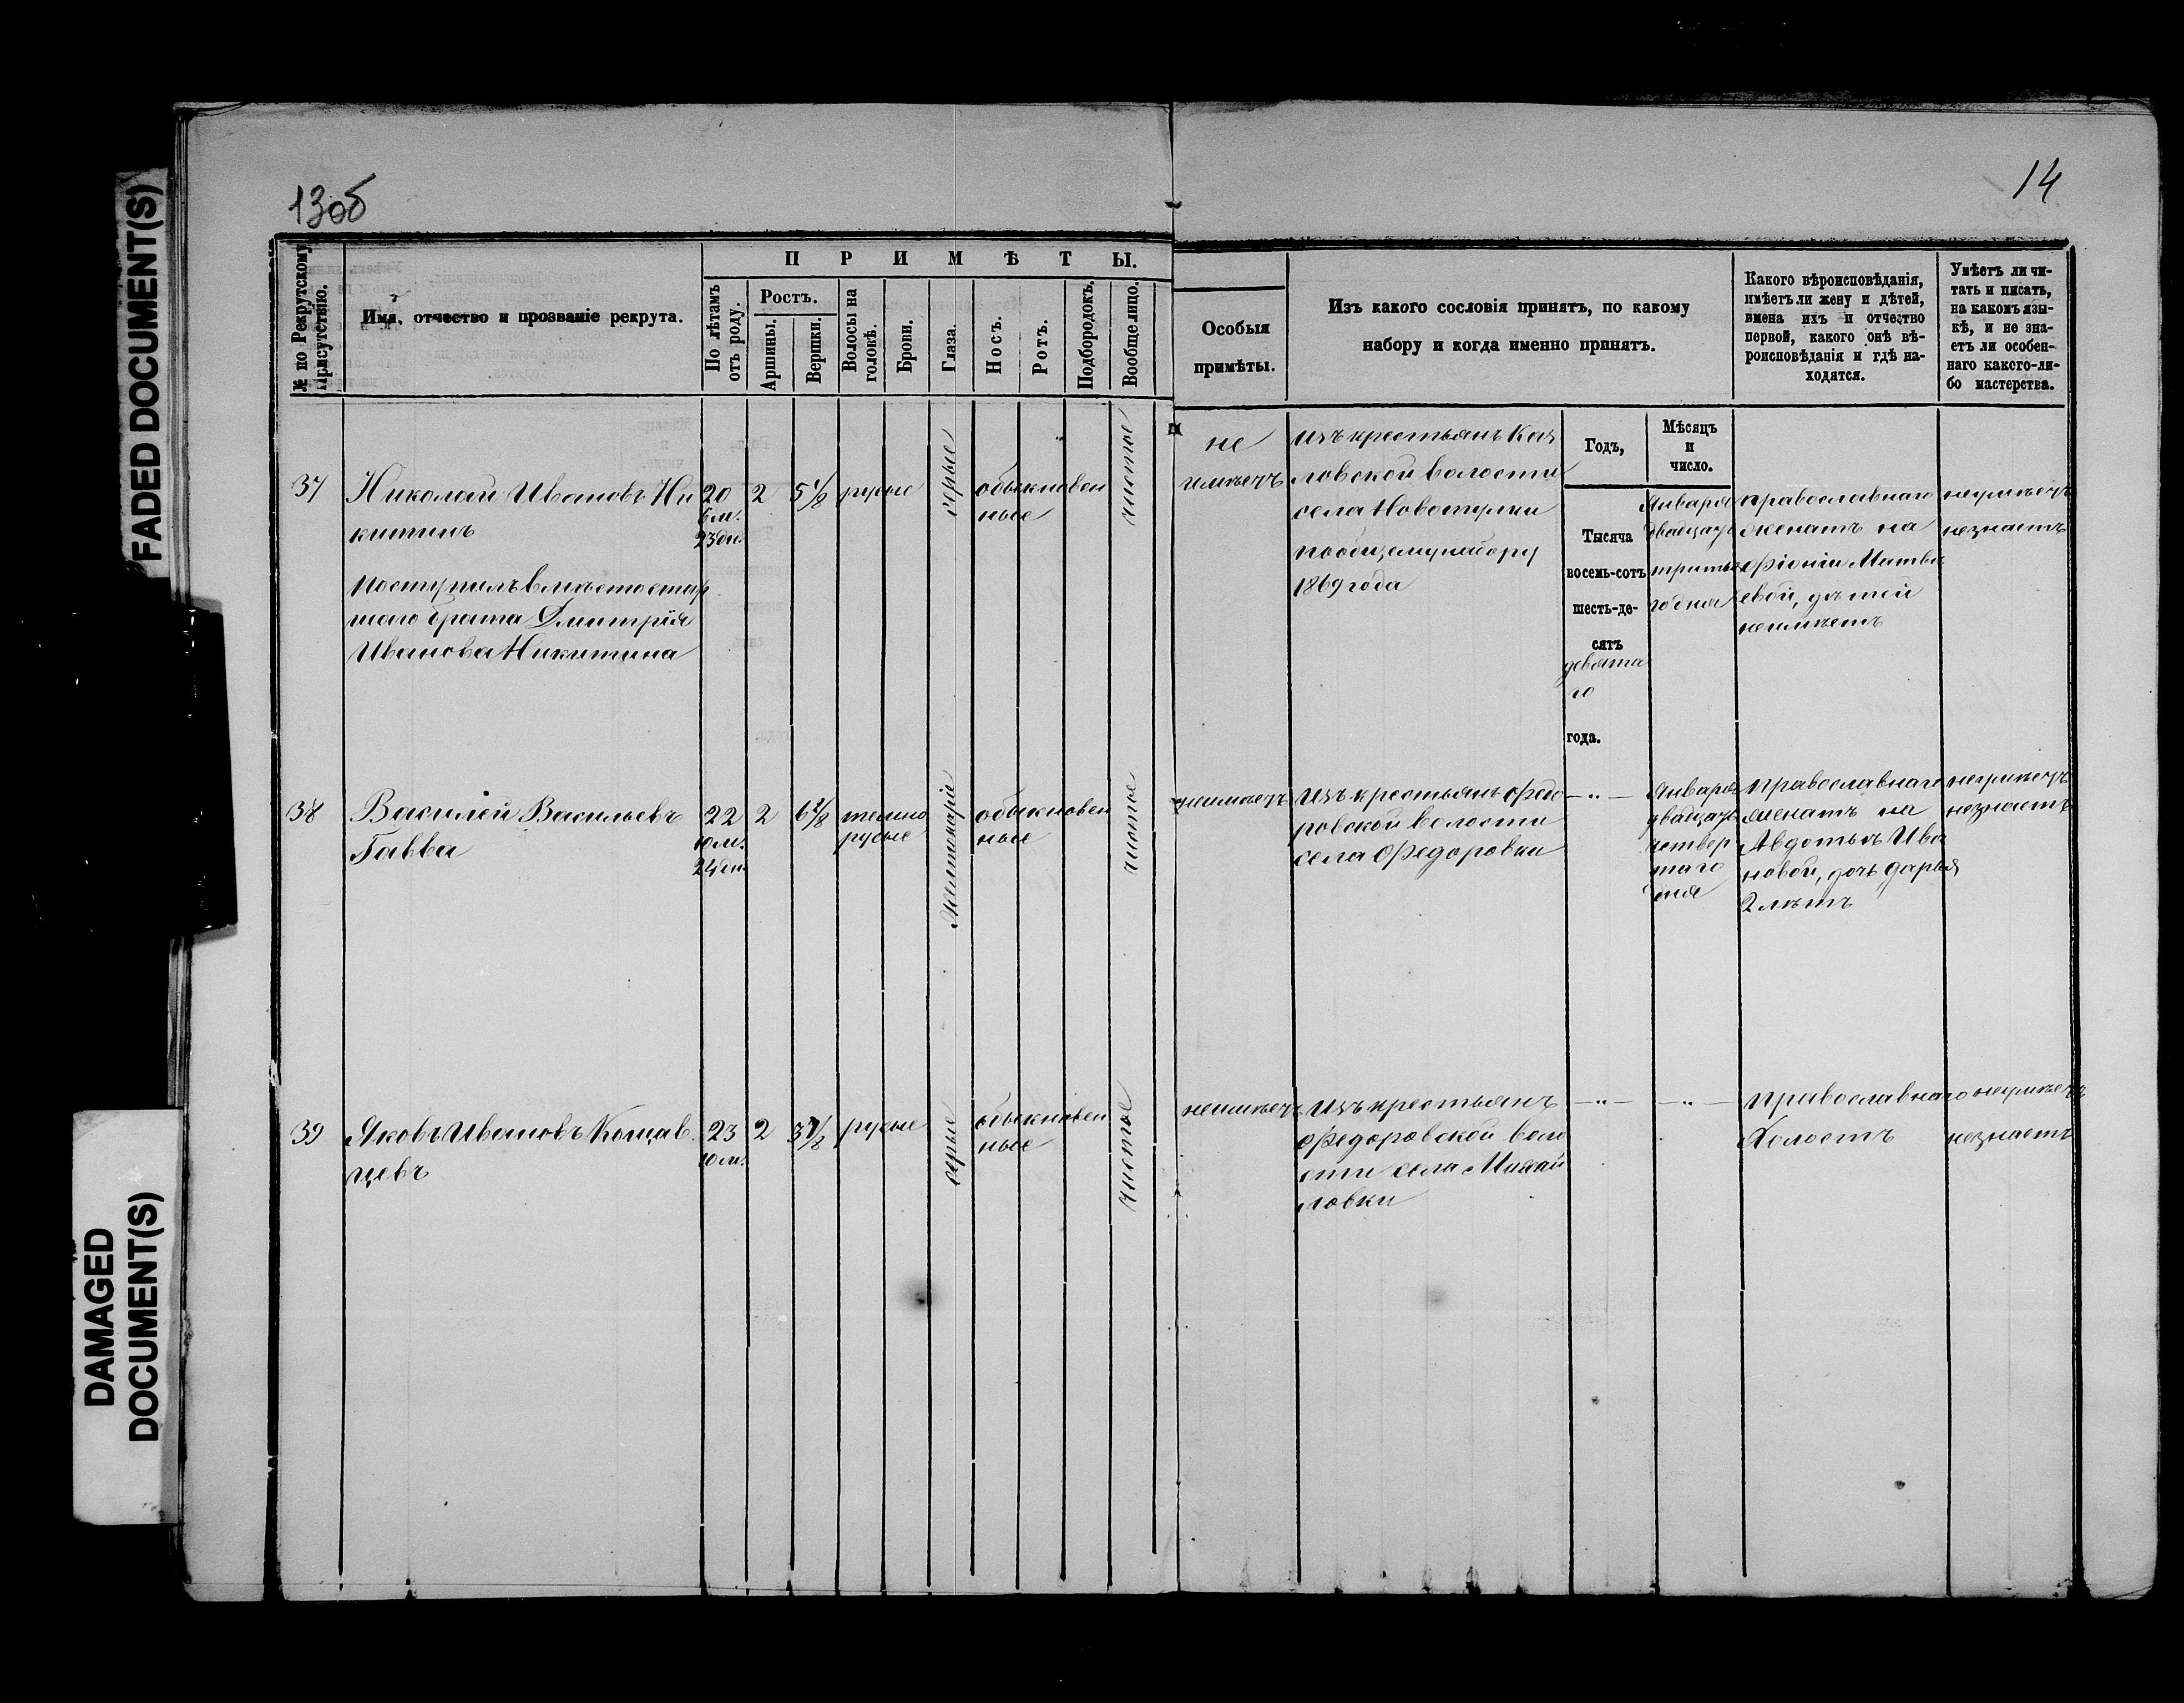 FADED DOCUMENT(S)
DAMAGED
DOCUMENT(S)
13об
14
№ по Рекрутскому
Присутствию.
Имя, отчество и прозваніе рекрута.
П Р И М Ѣ Т Ы.
По лѣтамъ
отъ роду.
Ростъ.
Аршины.
Вершки.
Волосы на
головѣ.
Брови.
Глаза.
Носъ.
Ротъ.
Подбородокъ.
Вообще лицо.
Особыя
примѣты.
Изъ какого сословія принятъ, по какому
набору и когда именно принятъ.
Какого вѣроисповѣданія,
имѣетъ ли жену и дѣтей,
имена ихъ и отчество
первой, какого онѣ вѣ-
роисповѣданія и гдѣ на-
ходятся.
Умѣетъ ли чи-
тать и писать,
на какомъ язы-
кѣ, и не зна-
етъ ли особен-
наго какого-ли-
бо мастерства.
Годъ,
Мѣсяцъ
и
число.
37
Николай Ивановъ Ни
китинъ
поступилъ вмѣсто стар
шаго брата Дмитрія
Иванова Никитина
20
6 м.
23 дн.
2
5 1/8
русые
серые
обыкновен
ные
чистое
не
имѣетъ
изъ крестьянъ Коз
ловской волости
села Новотулки
по общему набору
1869 года
Тысяча
восемь-сотъ
шесть-де-
сятъ
девята
го
года.
Января
двадцать
третья
го дня
православнаго
женатъ на
Матвѣ
евой, дѣтей
неимѣетъ
неумѣетъ
незнаетъ
38
Василій Васильевъ
Гавва
22
10 м.
24 дн.
2
6 2/8
темно
русые
Желтокаріе
обыкновен
ные
чистое
неимѣетъ
Изъ крестьянъ Федо
ровской волости
села Федоровки
— " —
Января
двадцать
четвер
таго
дня
православнаго
женатъ на
Авдотьѣ Ива
новой, дочь Дарья
2 лѣтъ
неумѣетъ
незнаетъ
39
Яковъ Ивановъ
цевъ
23
10 м.
2
3 7/8
русые
серые
обыкновен
ные
чистое
неимѣетъ
Изъ крестьянъ
Федоровской воло
сти села Михай
ловки
— " —
— " —
православнаго
Холостъ
неумѣетъ
незнаетъ